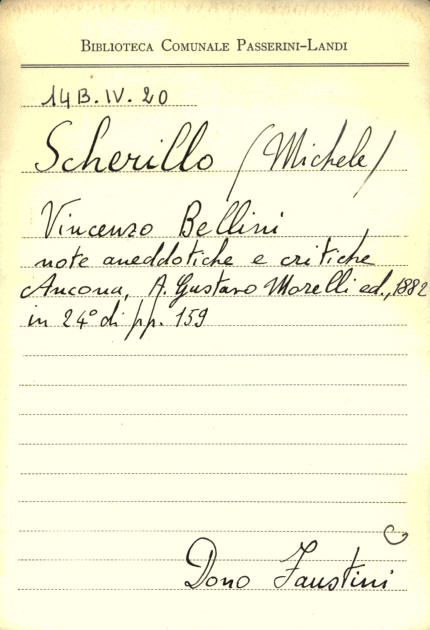 BIBLIOTECA COMUNALE PASSERINI-LANDI
14B.IV.20
Scherillo (Michele)
Vincenzo Bellini
note aneddotiche e critiche
Ancona, A. Gustavo Morelli ed., 1882
in 24° di pp. 159
Dono Faustini